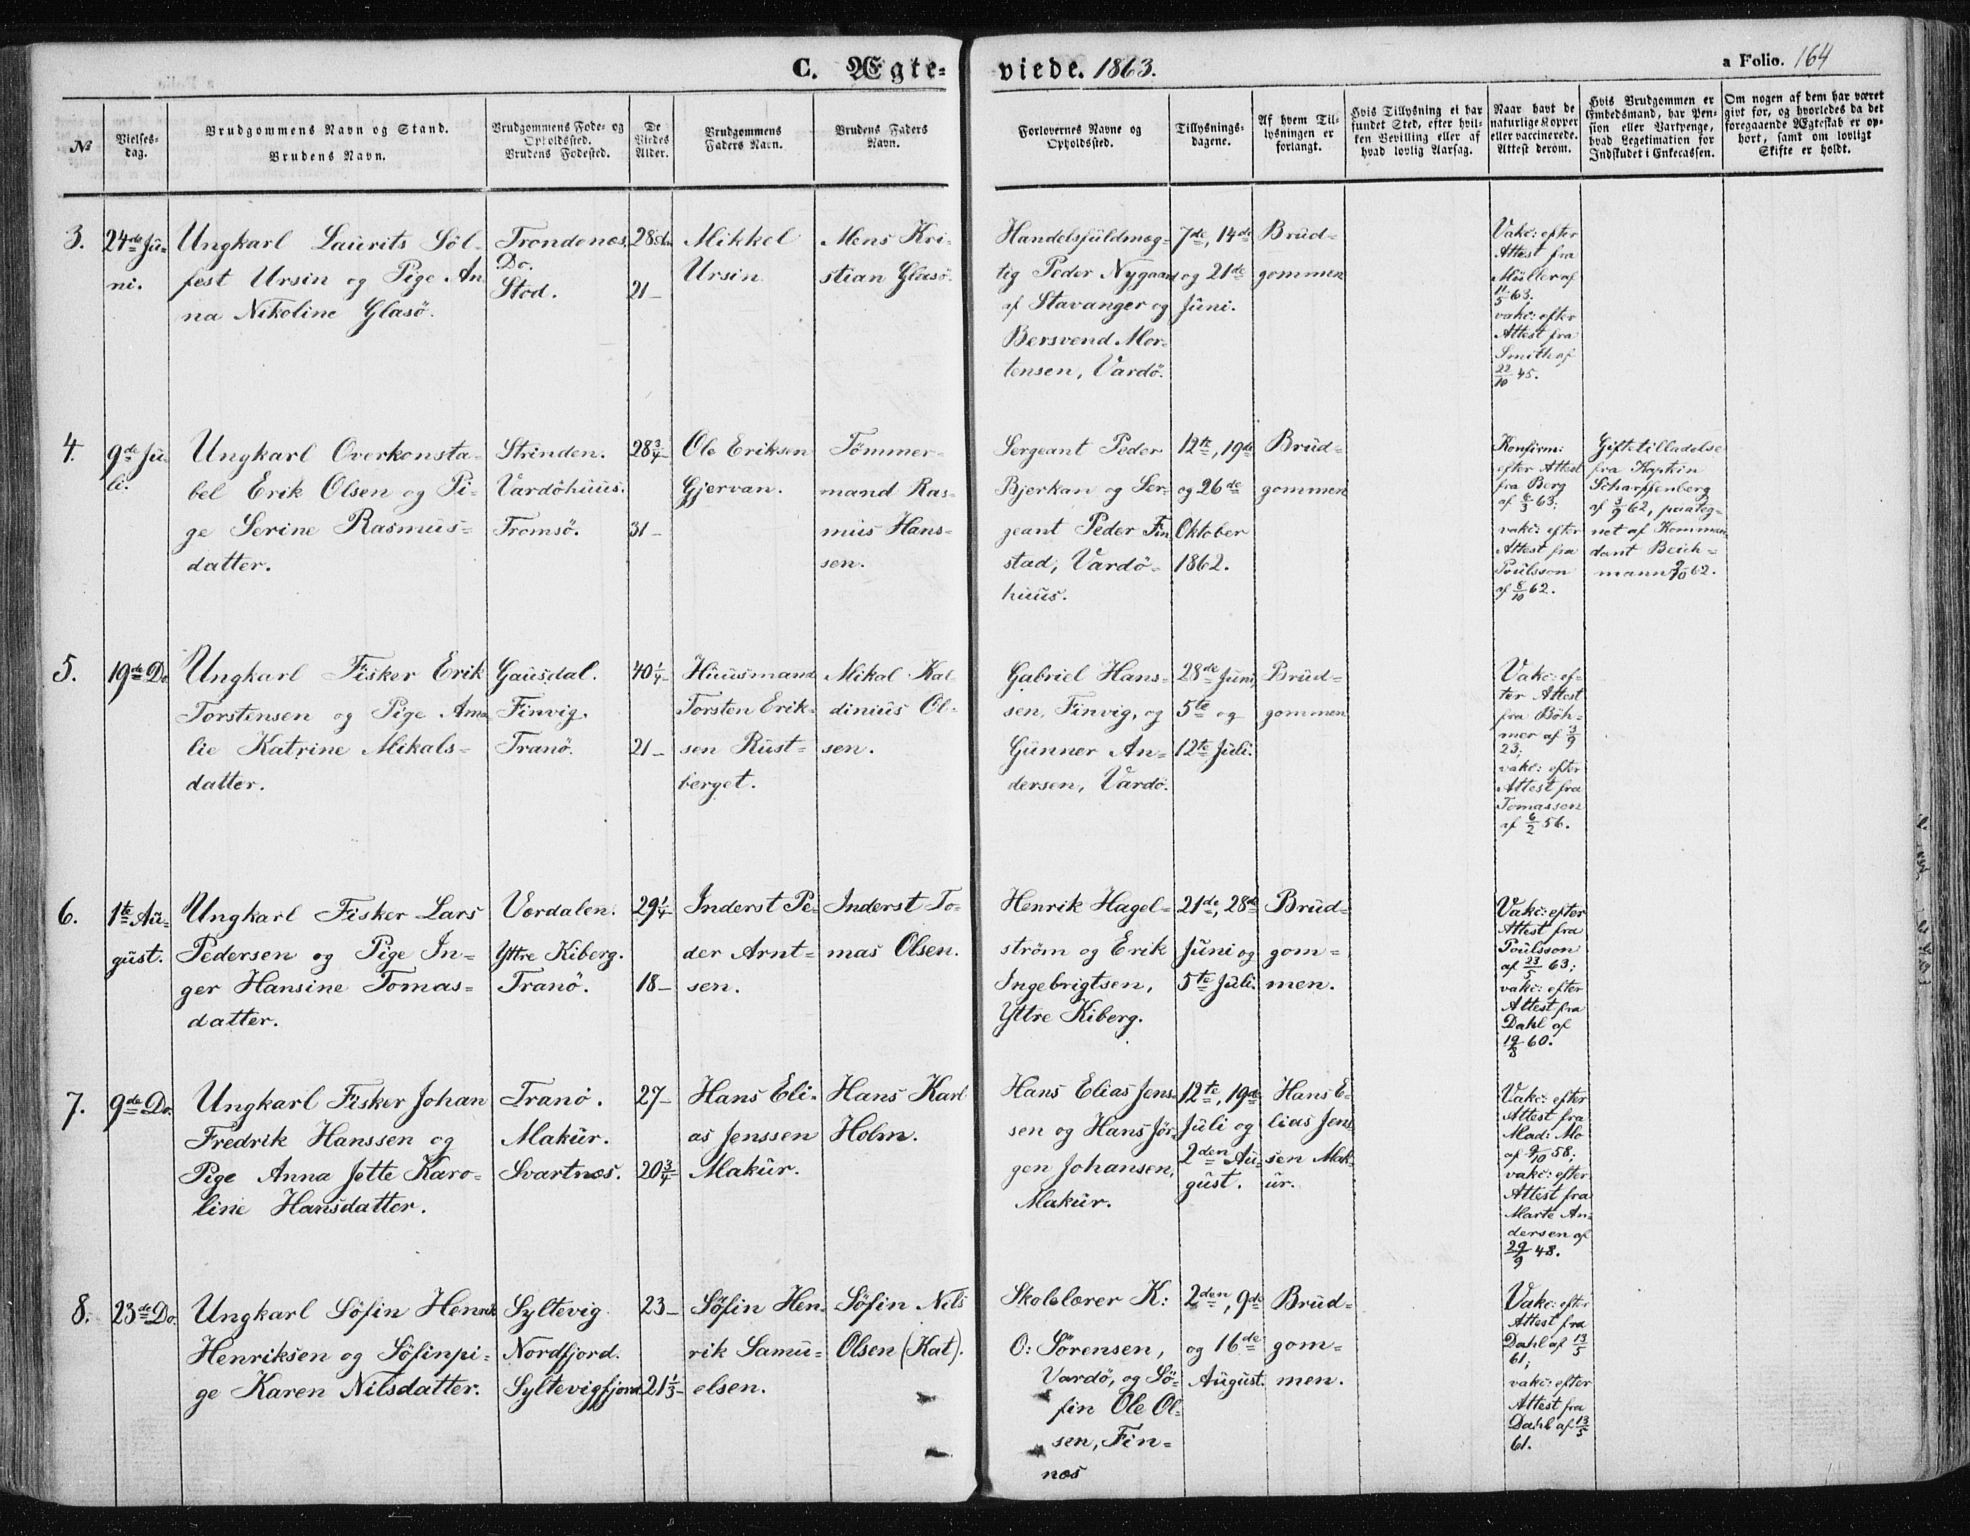 C. Ægte-
viede. 1863.
a Folio. 164
№
Vielses-
dag.
Brudgommens Navn og Stand.
Brudens Navn.
Brudgommens Føde- og
Opholdssted.
Brudens Fødested.
De
Viedes
Alder.
Brudgommens
Faders Navn.
Brudens Faders
Navn.
Forlovernes Navne og
Opholdssted.
Tillysnings-
dagene.
Af hvem Til-
lysningen er
forlangt.
Hvis Tillysning ei har
fundet Sted, efter hvil-
ken Bevilling eller af
hvad lovlig Aarsag.
Naar havt de
naturlige Kopper
eller vaccinerede.
Attest derom.
Hvis Brudgommen er
Embedsmand, har Pen-
sion eller Vartpenge,
hvad Legetimation for
Indskudet i Enkecassen.
Om nogen af dem har været
givt før, og hvorledes da det
foregaaende Ægteskab er op-
hørt, samt om lovligt
Skifte er holdt.
3.
24de Ju-
ni.
Ungkarl Laurits Søl-
fest Ursin og Pige An
na Nikoline Glasö.
Trondenæs.
Do.
Stod.
28
21 –
Mikkel
Ursin.
Mons Kri-
stian Glasö.
Handelsfuldmæg-
tig Peder Nygaard
af Stavanger og
Bersvend Mor-
tensen, Vardö.
7de, 14de
og 21de
Juni.
Brud-
gommen
Vakc: efter
Attest fra
Müller af
11/5 63.
vakc: efter
Attest fra
Smith af
22/10 45.
4.
9de Ju-
li.
Ungkarl Overkonsta-
bel Erik Olsen og Pi-
ge Serine Rasmus-
datter.
Strinden.
Vardöhuus.
Tromsö.
28 3/4 –
31 –
Ole Eriksen
Gjervan.
Tömmer-
mand Ras-
mus Hans-
sen.
Sergeant Peder
Bjerkan og Ser-
geant Peder Fin
stad, Vardö-
huus.
12te, 19de
og 26de
Oktober
1862.
Brud-
gommen
Konfirm:
efter Attest
fra Berg
af 6/3 63;
vakc: efter
Attest fra
Poulsson
af 8/10 62.
Giftetilladelse
fra Kaptin
Scharffenberg
af 3/9 62, paateg-
net af Komman
dant Beich-
mann 9/10 62.
5.
19de Do
Ungkarl Fisker Erik
Torstensen og Pige Ama
lie Katrine Mikals-
datter.
Gausdal.
Finvig.
Tranö.
40 1/4 –
21 –
Huusmand
Torsten Erik-
sen Rust-
berget.
Mikal Kal-
dinius Ol-
sen.
Gabriel Hans-
sen, Finvig, og
Gunner An-
dersen, Vardö.
28de Juni,
5te og
12te Juli.
Brud-
gommen
Vakc: ef-
ter Attest
fra Böh-
mer af 3/9
23;
vakc: efter
Attest fra
Tomassen
af 6/2 56.
6.
1ste Au-
gust.
Ungkarl Fisker Lars
Pedersen og Pige In-
ger Hansine Tomas-
datter.
Værdalen.
Yttre Kiberg.
Tranö.
29 1/4 –
18 –
Inderst Pe-
der Arnt-
sen.
Inderst To-
mas Olsen.
Henrik Hagel-
ström og Erik
Ingebrigtsen,
Yttre Kiberg.
21de, 28de
Juni og
5te Juli.
Brud-
gom-
men.
Vakc: efter
Attest fra
Poulsson
af 23/5 63;
vakc: efter
Attest fra
Dahl af
19/8 60.
7.
9de Do.
Ungkarl Fisker Johan
Fredrik Hanssen og
Pige Anna Jette Karo-
line Hansdatter.
Tranö.
Makur.
Svartnæs.
27 –
20 3/4 –
Hans Eli-
as Jenssen
Makur.
Hans Karl
Holm.
Hans Elias Jens-
sen og Hans Jør-
gen Johansen,
Makur.
12te, 19de
Juli og
2den Au-
gust.
Hans E-
lias Jens
sen Mak-
ur.
Vakc: efter
Attest fra
Mad: Mo
af 9/10 58;
vakc: efter
Attest fra
Marte An-
dersen af
29/9 48.
8.
23de Do.
Ungkarl Söfin Henrik
Henriksen og Söfinpi-
ge Karen Nilsdatter.
Syltevig
Nordfjord.
Syltevigfjord
23 –
21 1/3 –
Söfin Hen-
rik Samu-
elsen.
Söfin Nils
Olsen (Kat).
Skolelærer K:
O: Sörensen,
Vardö, og Sö-
fin Ole Ol-
sen, Fin-
næs
2den, 9de
og 16de
August.
Brud-
gom-
men.
Vakc: efter
Attest fra
Dahl af 13/5
61;
vakc: efter
Attest fra
Dahl af 13/5
61.